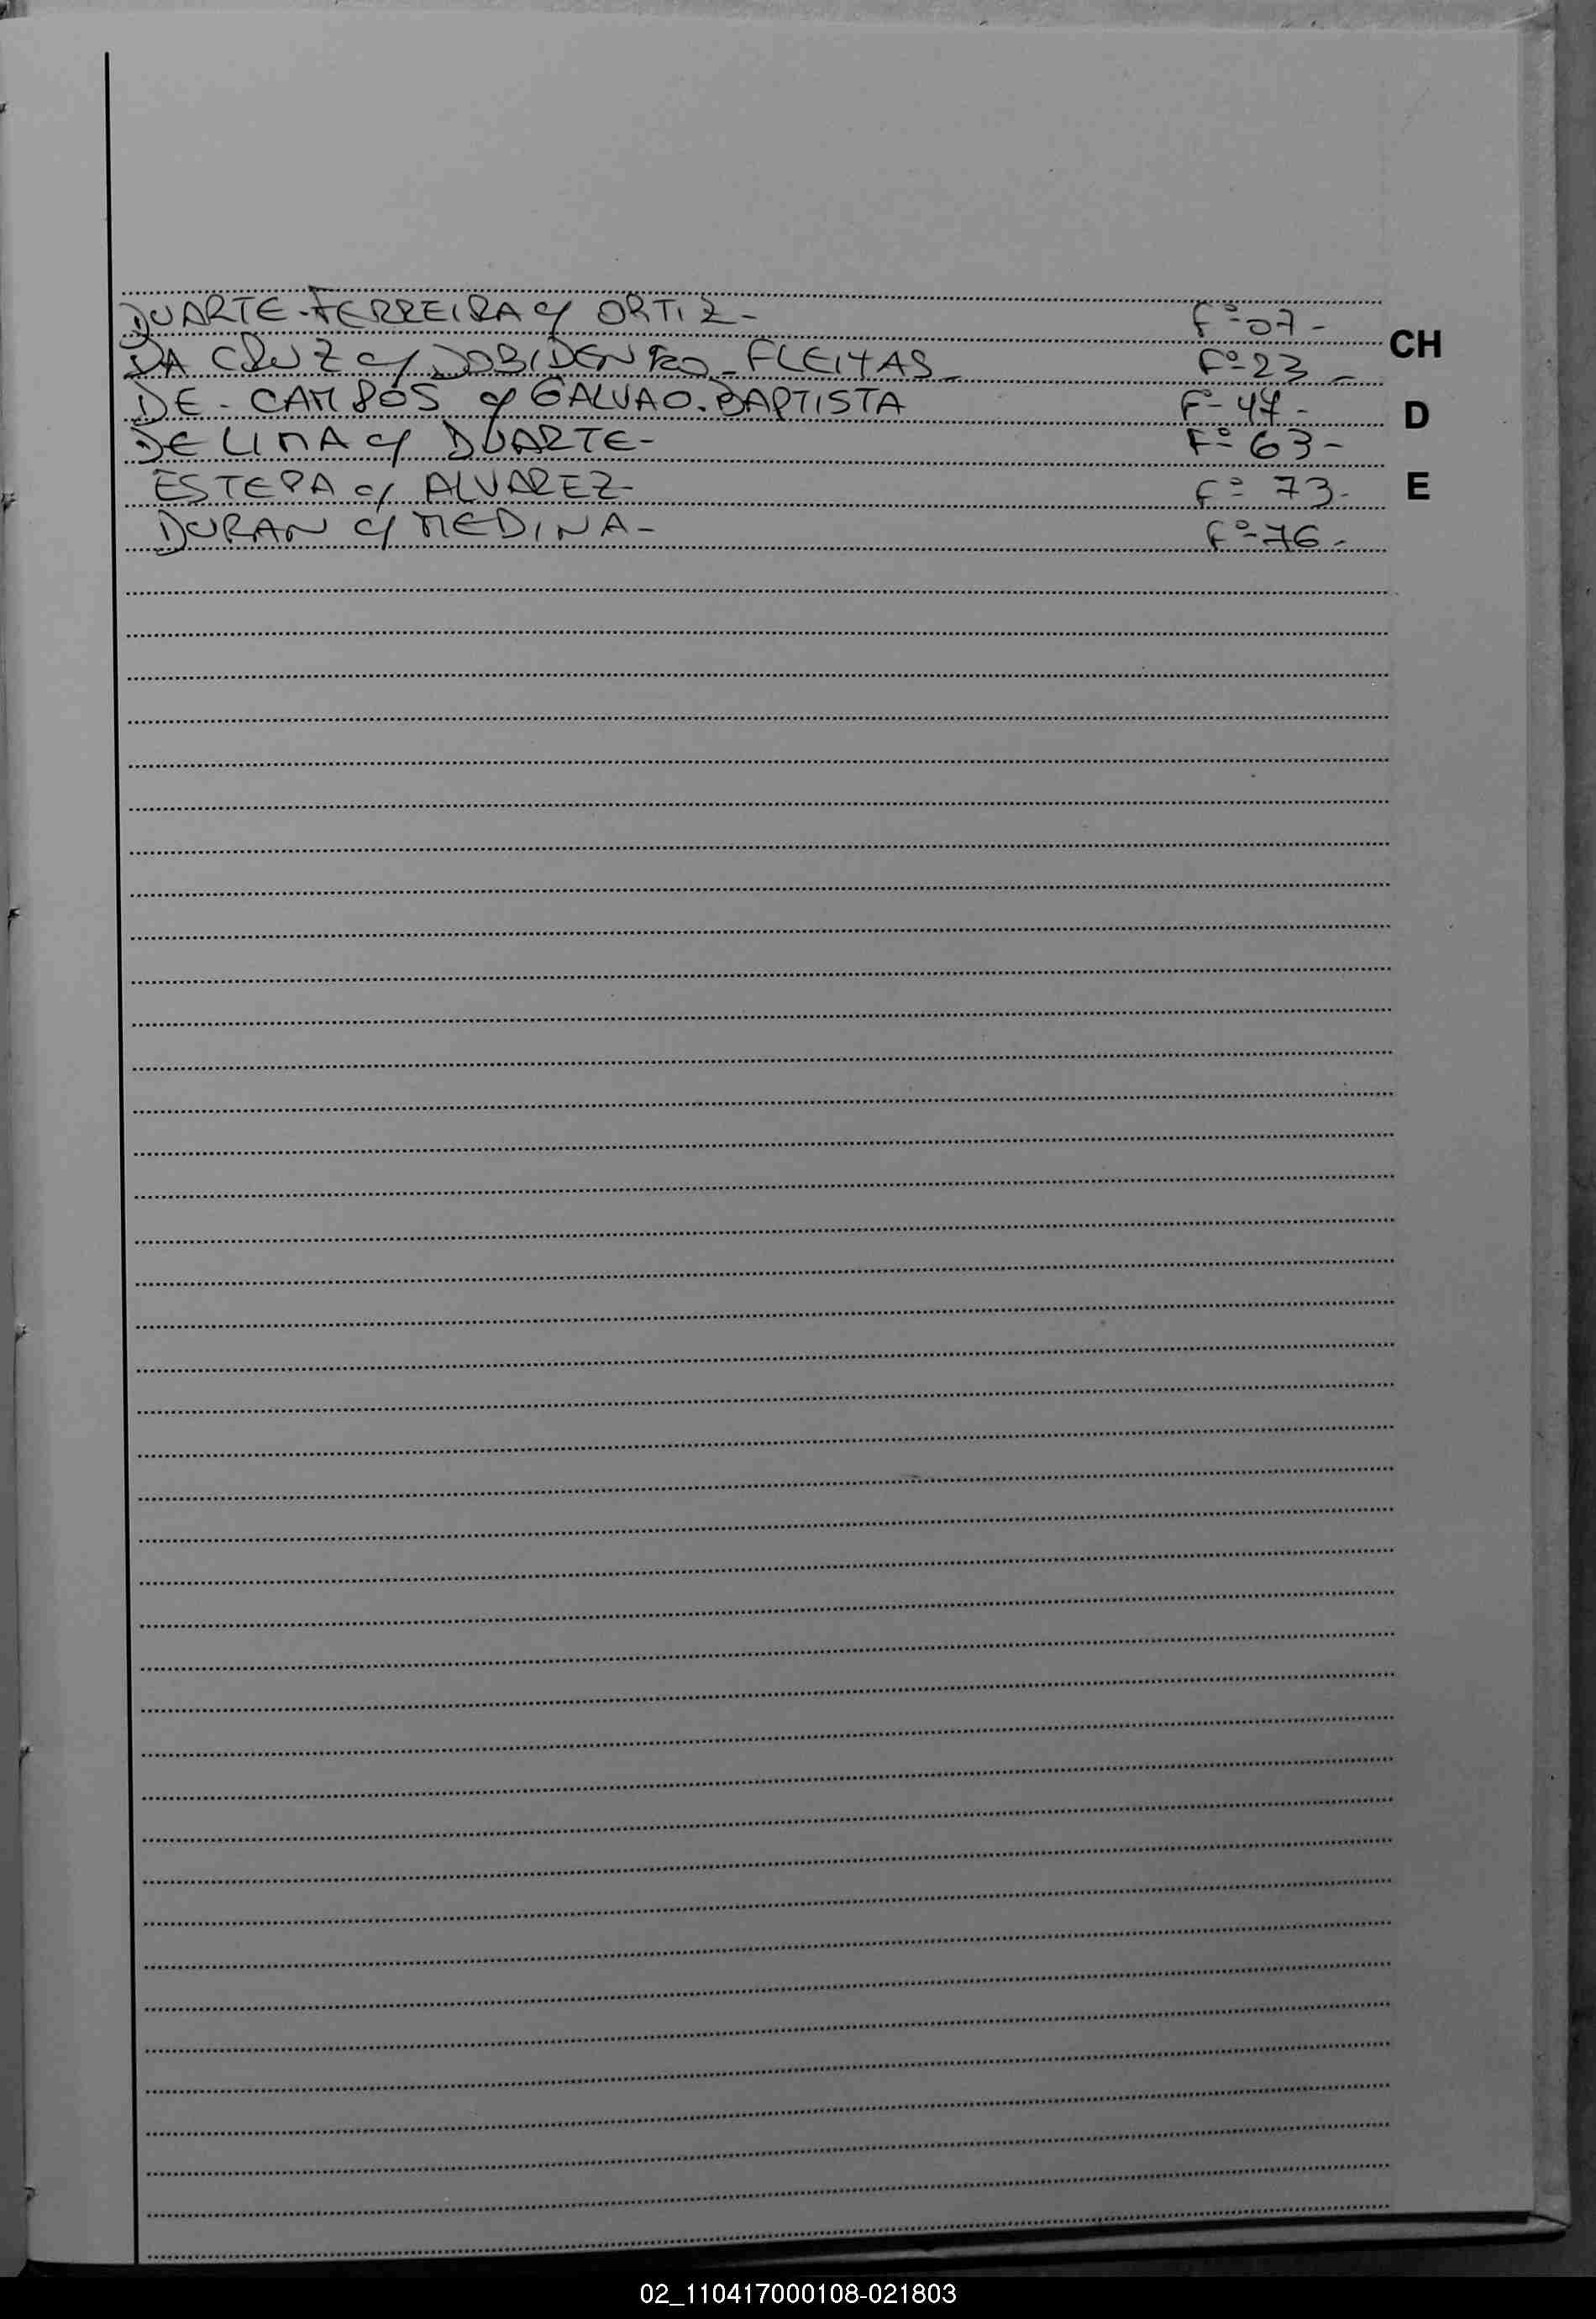 DUARTE-FERREIRA c/ ORTIZ- Fº 07-
DA CRUZ c/ FLEITAS- Fº 23-
DE-CAMPOS c/ GALVAO-BAPTISTA Fº 47-
DE LIMA c/ DUARTE- Fº 63-
ESTEPA c/ ALVAREZ- Fº 73-
DURAN c/ MEDINA- Fº 76-
CH
D
E
02_110417000108-021803